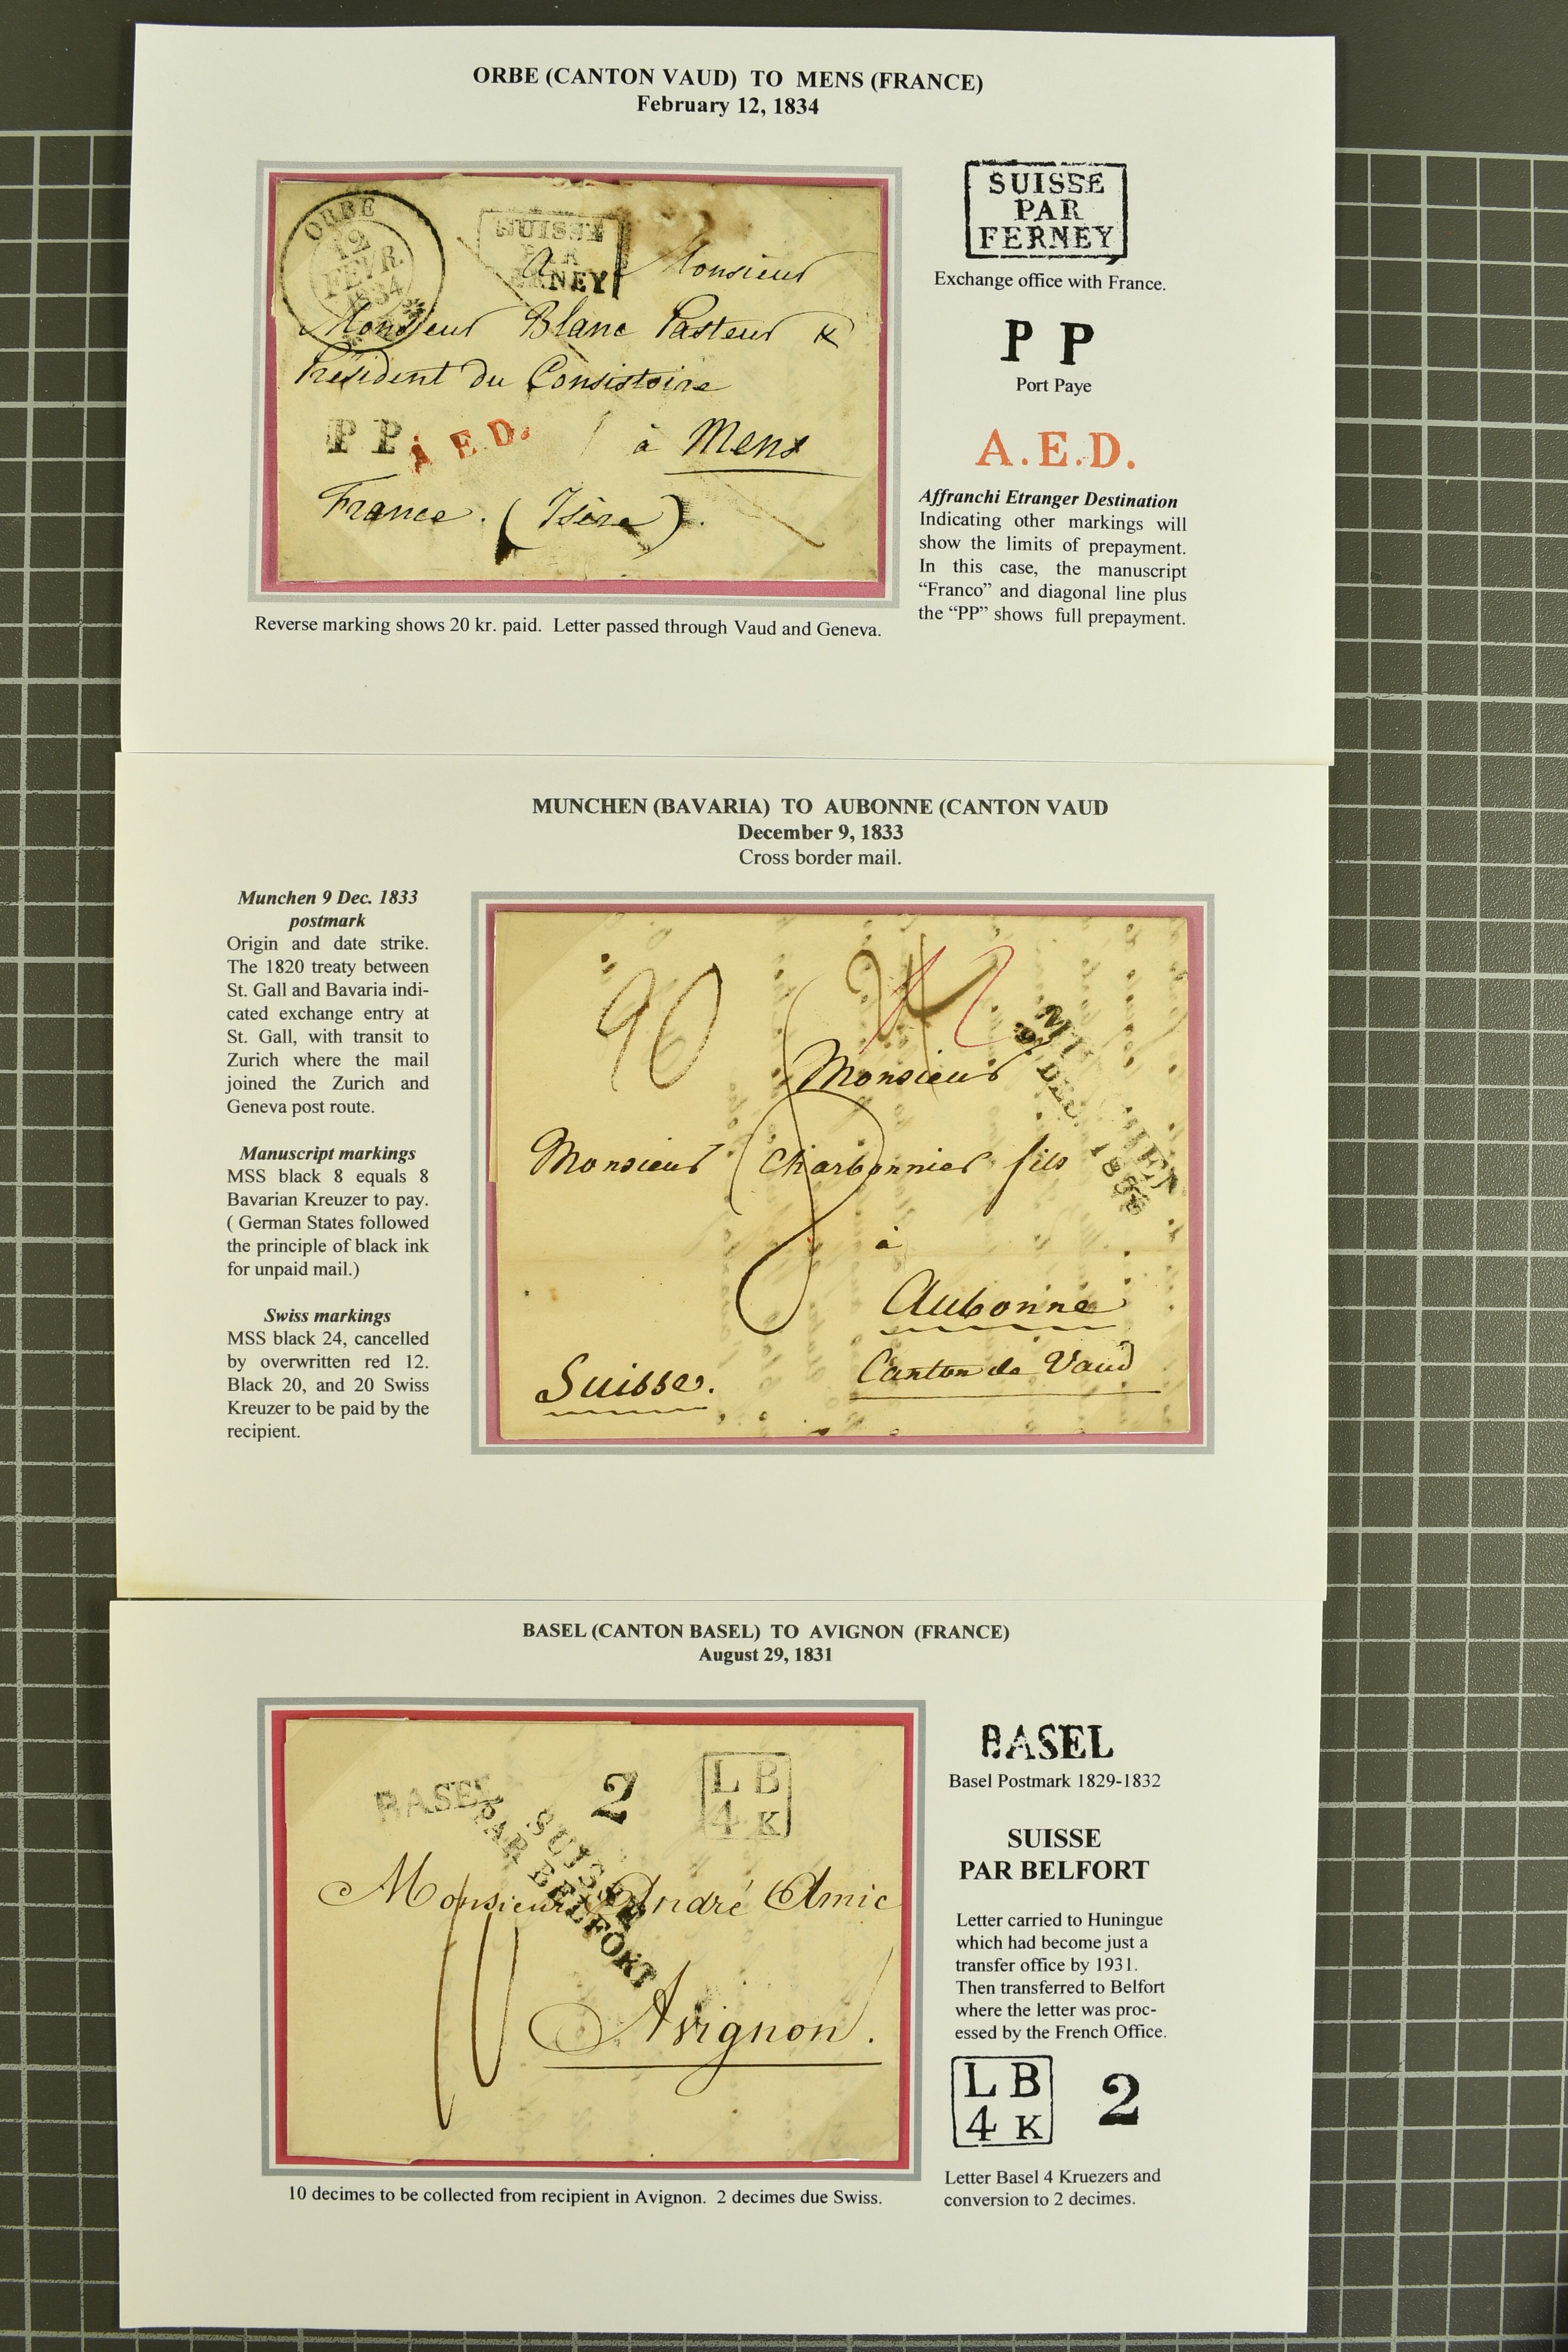 ORBE (CANTON VAUD) TO MENS (FRANCE)
February 12, 1834
ORBE
12
FEVR.
1834
SUISSE
PAR
FERNEY
A Monsieur
Monsieur Blanc Pasteur &
Président du Consistoire
P P A.E.D.
à Mens
France. (Isère).
Reverse marking shows 20 kr. paid. Letter passed through Vaud and Geneva.
SUISSE
PAR
FERNEY
Exchange office with France.
P P
Port Paye
A.E.D.
Affranchi Etranger Destination
Indicating other markings will
show the limits of prepayment.
In this case, the manuscript
“Franco” and diagonal line plus
the “PP” shows full prepayment.
MUNCHEN (BAVARIA) TO AUBONNE (CANTON VAUD
December 9, 1833
Cross border mail.
Munchen 9 Dec. 1833
postmark
Origin and date strike.
The 1820 treaty between
St. Gall and Bavaria indi-
cated exchange entry at
St. Gall, with transit to
Zurich where the mail
joined the Zurich and
Geneva post route.
Manuscript markings
MSS black 8 equals 8
Bavarian Kreuzer to pay.
( German States followed
the principle of black ink
for unpaid mail.)
Swiss markings
MSS black 24, cancelled
by overwritten red 12.
Black 20, and 20 Swiss
Kreuzer to be paid by the
recipient.
24 12
MUNCHEN
9 DEC. 1833
Monsieur
Monsieur Charbonnier fils
8
à
Aubonne
Canton de Vaud
Suisse.
BASEL (CANTON BASEL) TO AVIGNON (FRANCE)
August 29, 1831
BASEL
2
L B
4 K
SUISSE
PAR BELFORT
Monsieur André Amic
10
Avignon.
10 decimes to be collected from recipient in Avignon. 2 decimes due Swiss.
BASEL
Basel Postmark 1829-1832
SUISSE
PAR BELFORT
Letter carried to Huningue
which had become just a
transfer office by 1931.
Then transferred to Belfort
where the letter was proc-
essed by the French Office.
L B
4 K
2
Letter Basel 4 Kruezers and
conversion to 2 decimes.